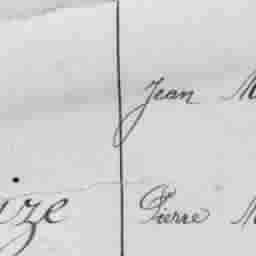 Jean M
ize Pierre M